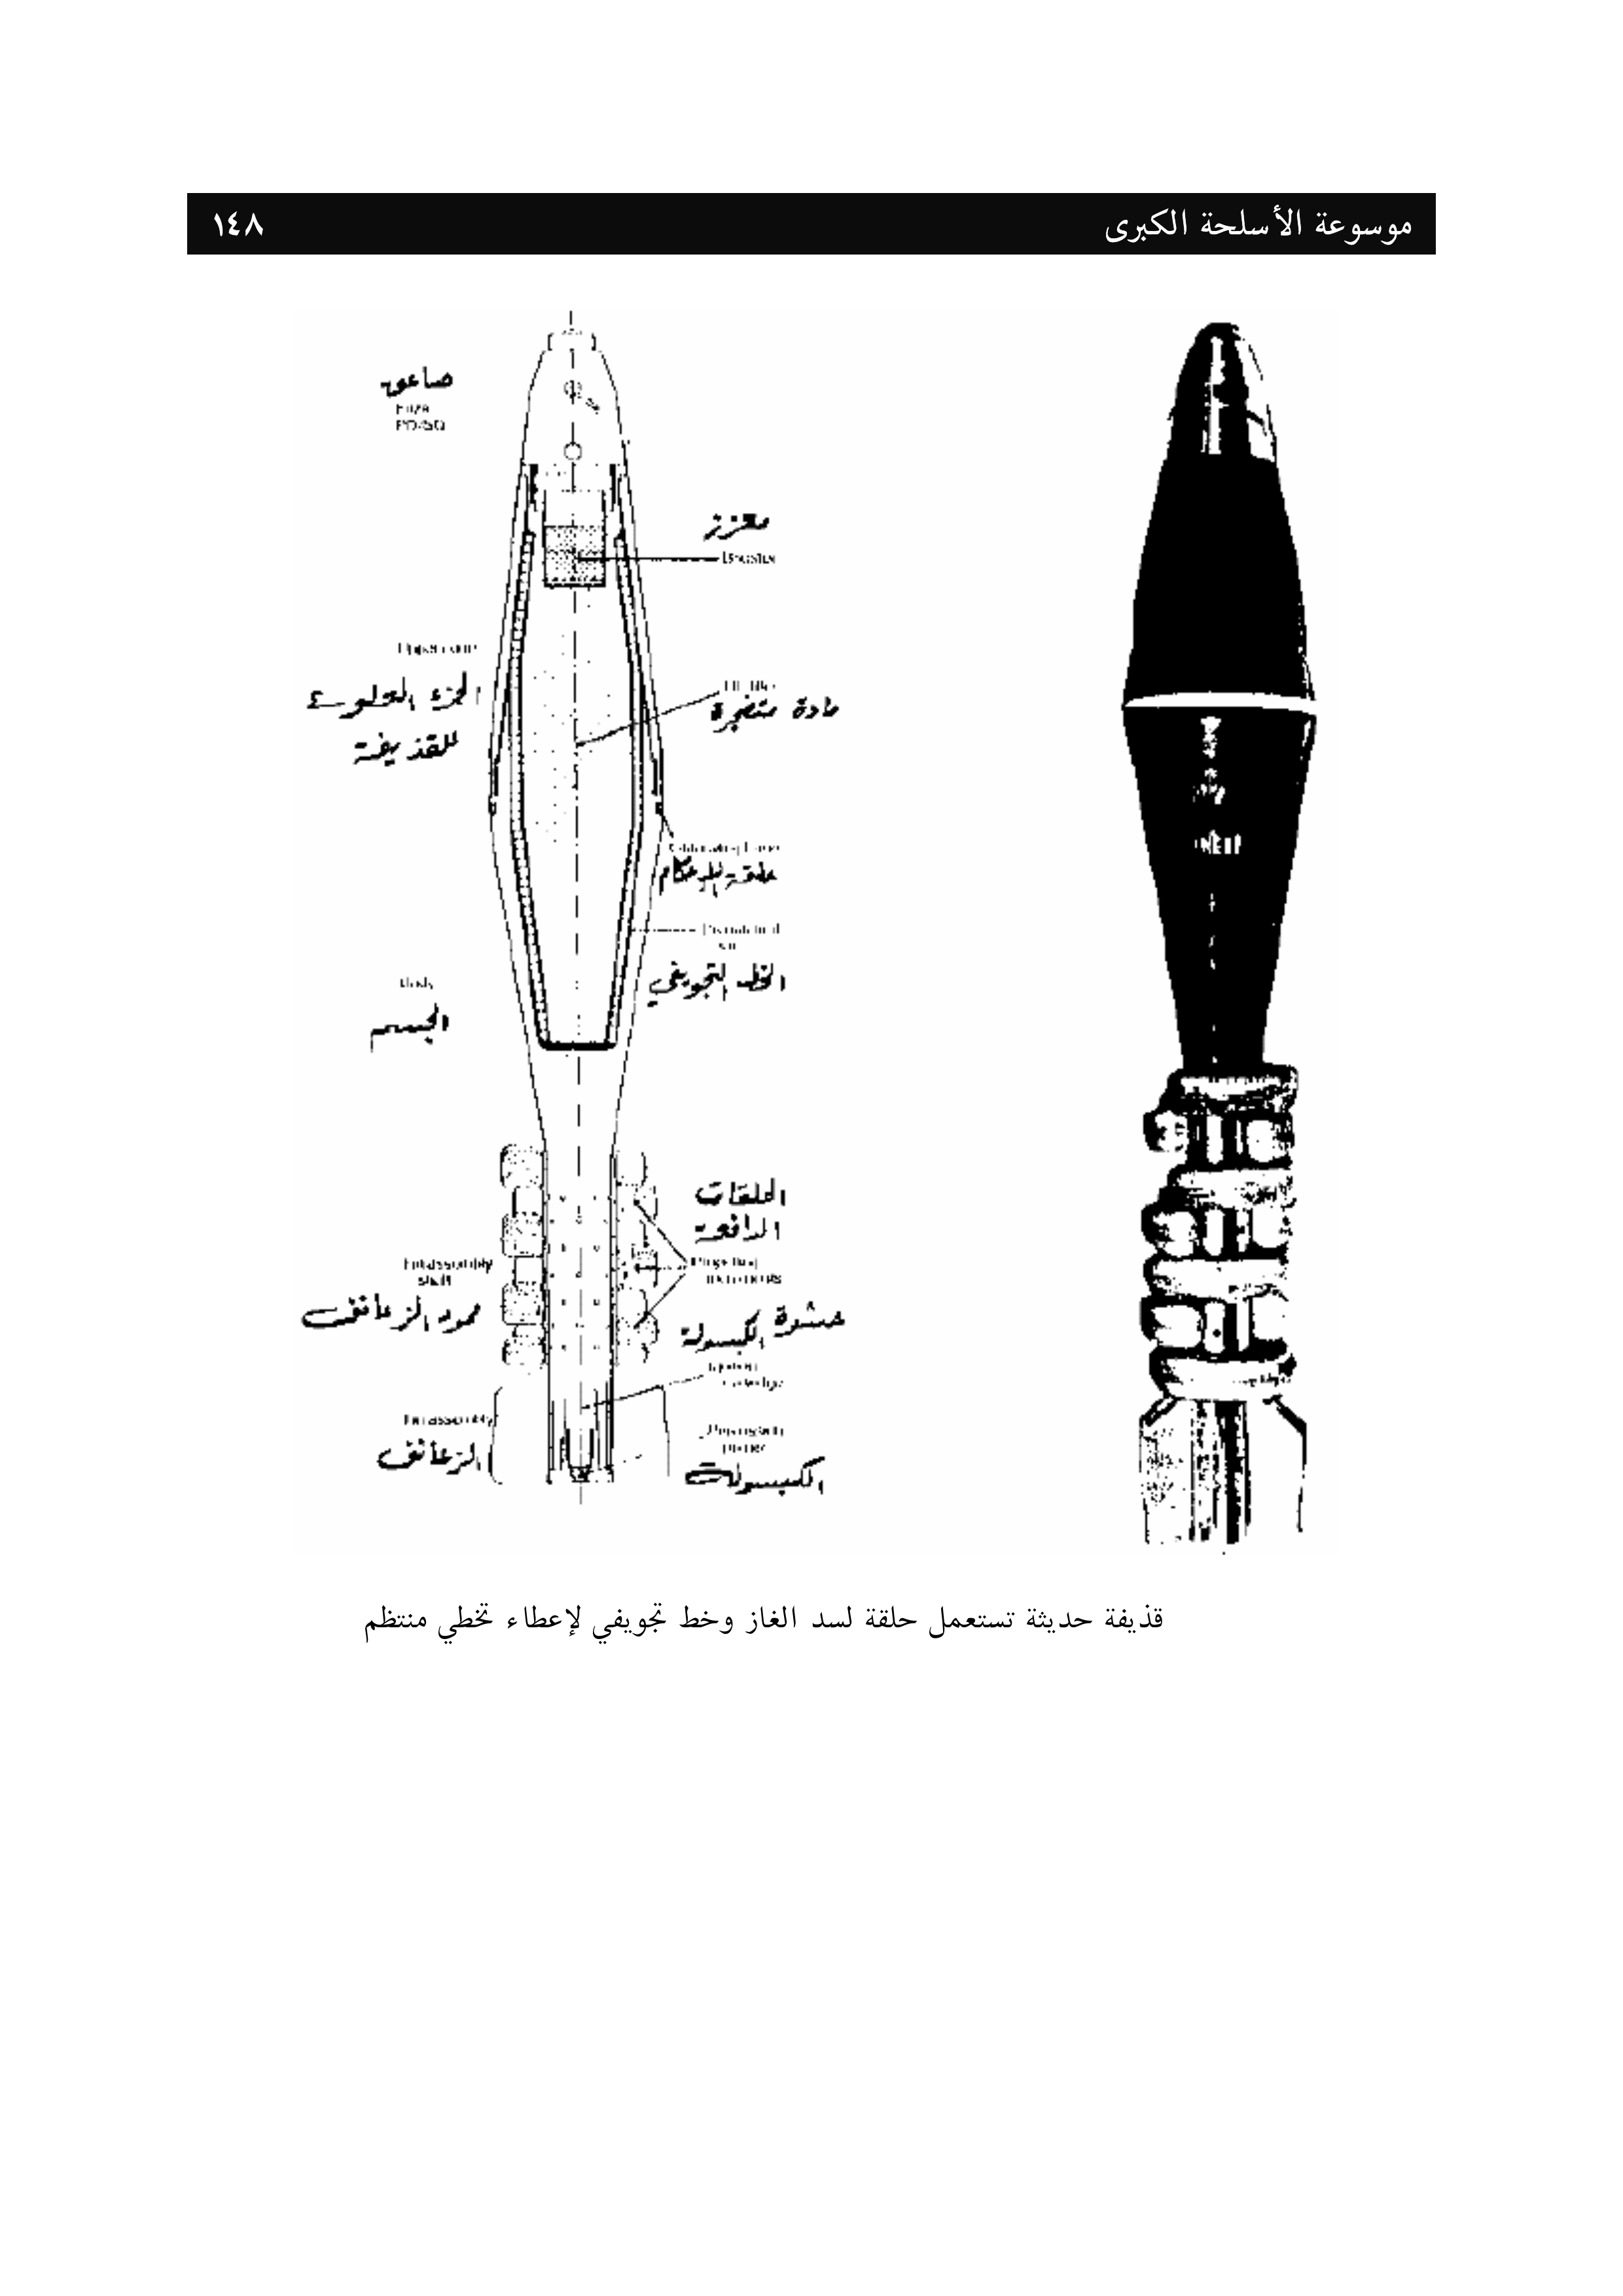 موسوعة الأسلحة الكبرى
١٤٨
صاعق
معزز
الجزء العلوي
للقذيفة
مادة متفجرة
حلقة الإحكام
الخط التجويفي
Body
الجسم
الحلقات
الدافعة
Fin assembly
shaft
عمود الزعانف
حشوة الكبسولة
Fin assembly
الزعانف
الكبسولة
قذيفة حديثة تستعمل حلقة لسد الغاز وخط تجويفي لإعطاء تخطي منتظم